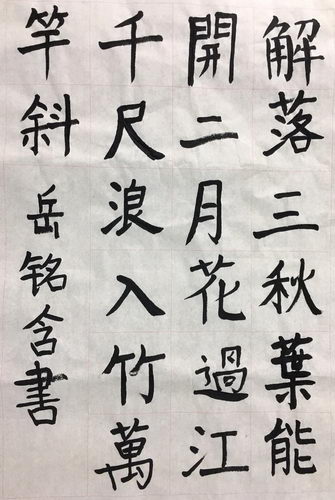 解落三秋葉能
開二月花過江
千尺浪入竹萬
竿斜 岳铭含書